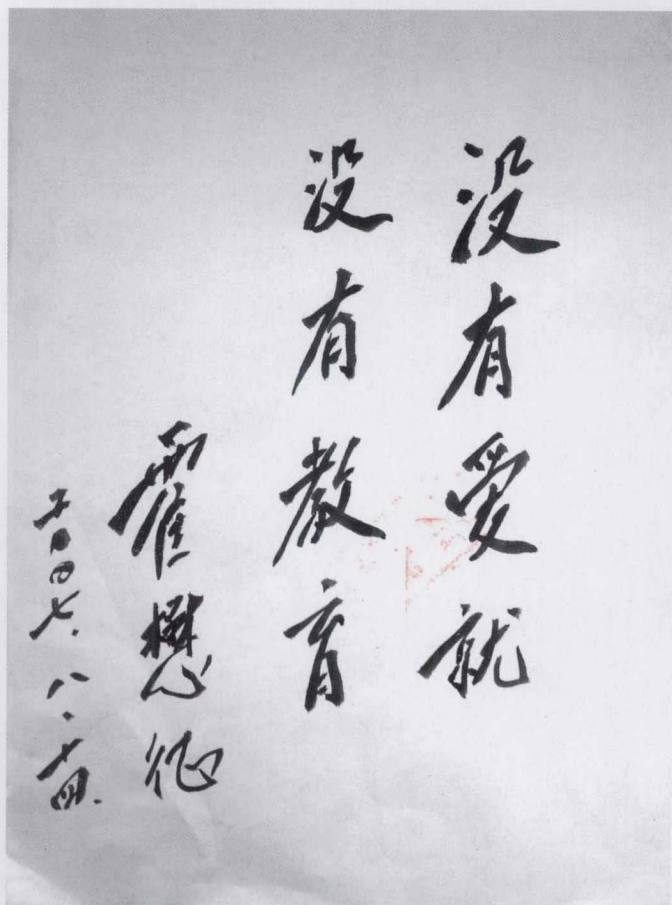 没有爱就
没有教育
霍懋征
二〇〇七.八.十四.